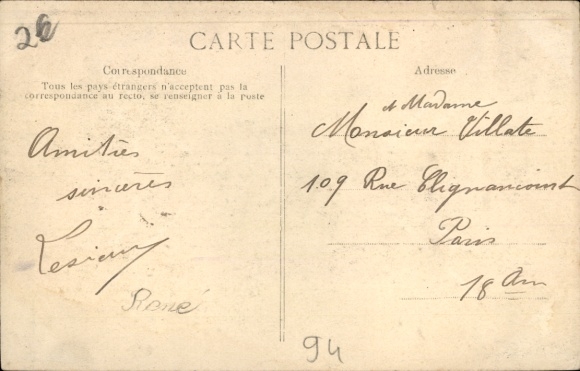 26
CARTE POSTALE
Correspondance
Tous les pays étrangers n'acceptent pas la
correspondance au recto, se renseigner à la poste
Amitiés
sincères
René
Adresse
et Madame
Monsieur Villate
109 Rue Clignancourt
Paris
18 Arr
94